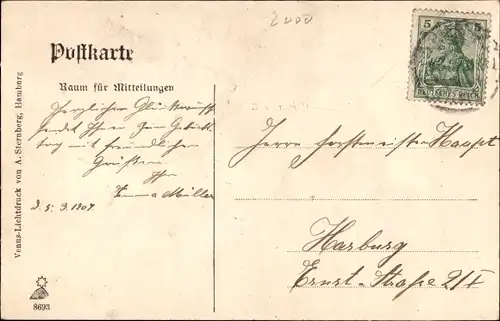 2400
5
DEUTSCHES REICH
Postkarte
Raum für Mitteilungen
Herzlichen Glückwunsch
sendet Ihnen zum Geburts-
tag mit freundlichen
Grüßen
Ihr
Emma Müller
d. 5. 9. 1907.
Herrn Forstmeister Haupt
Harburg
Ernst-Straße 2/I
Venus-Lichtdruck von A. Sternberg, Hamburg
8693